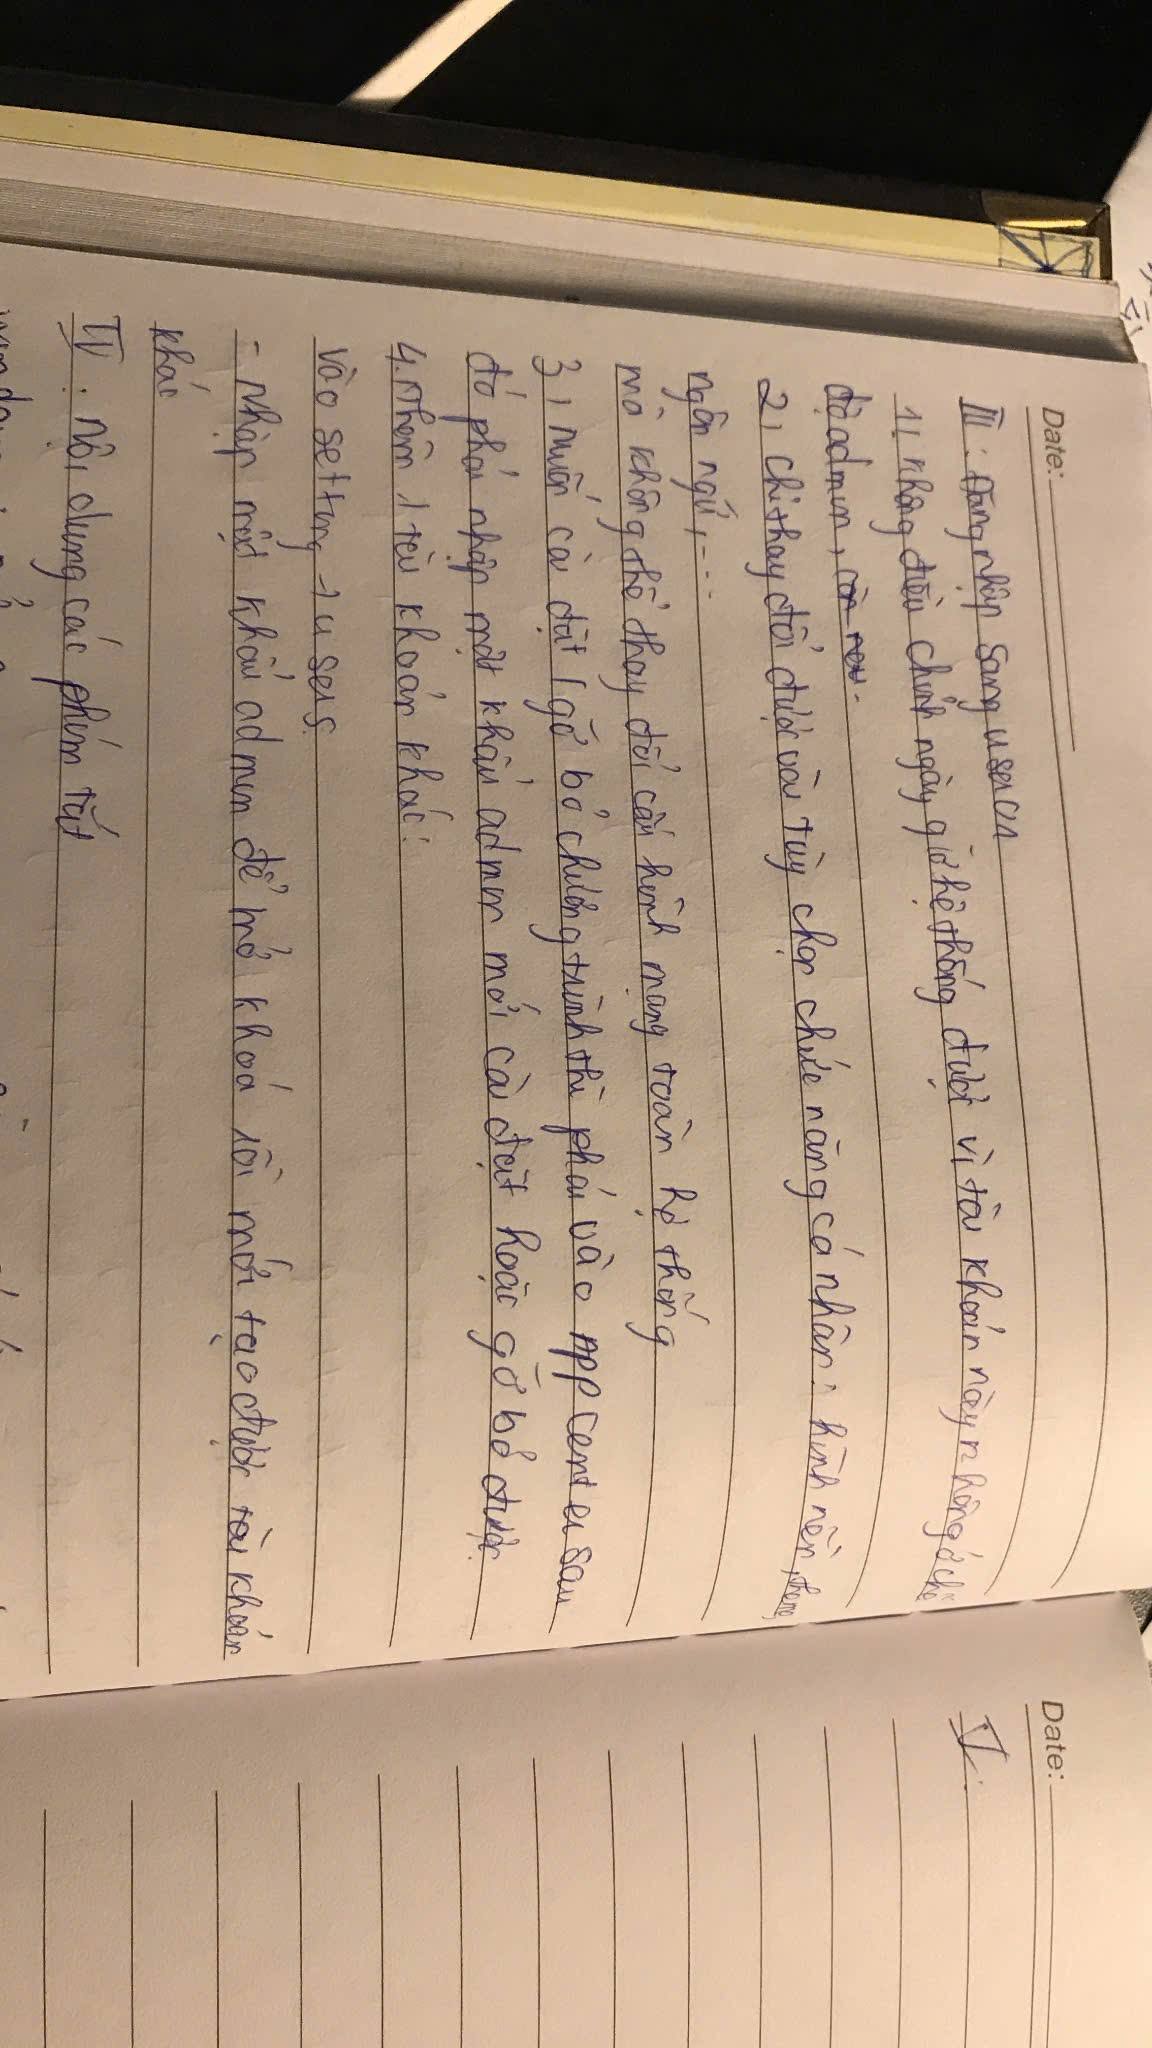 Date:
III: Đăng nhập sang user01
1, không điều chỉnh ngày giờ hệ thống được vì tài khoản này không ở chế
độ admin,
2, chỉ thay đổi được vài tùy chọn chức năng cá nhân: hình nền, theme,
ngôn ngữ,...
mà không thể thay đổi cấu hình mạng toàn hệ thống
3, muốn cài đặt / gỡ bỏ chương trình thì phải vào App center sau
đó phải nhập mật khẩu admin mới cài đặt hoặc gỡ bỏ được.
4. Thêm 1 tài khoản khác:
vào setting → users
- nhập mật khẩu admin để mở khoá rồi mới tạo được tài khoản
khác
IV: nội dung các phím tắt
Date:
V: